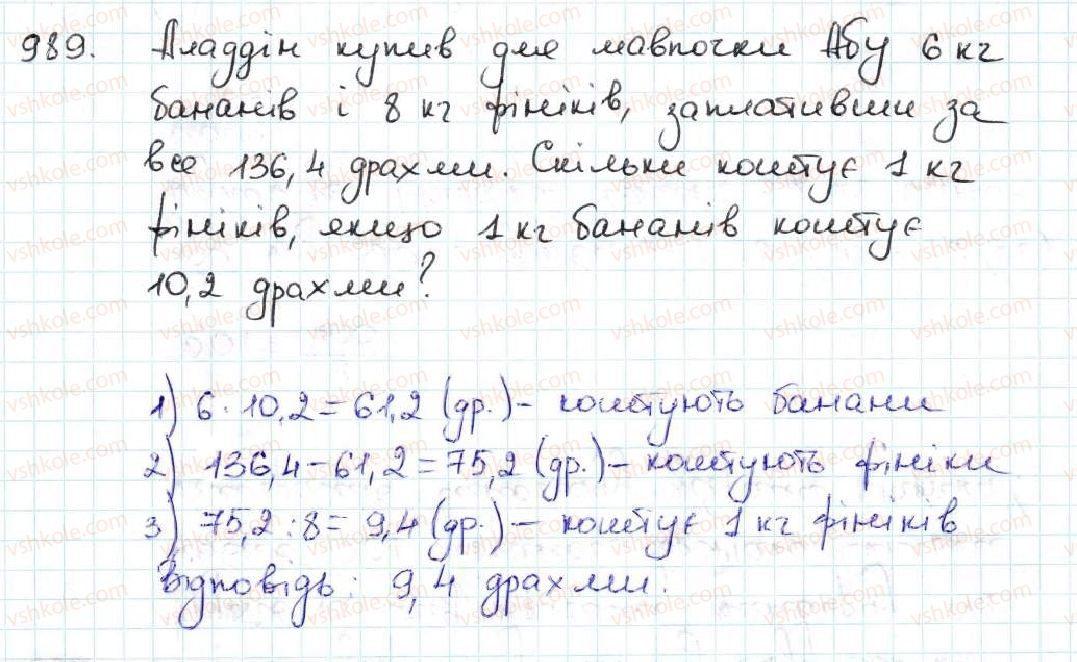 989. Аладдін купив для мавпочки Абу 6 кг
бананів і 8 кг фініків, заплативши за
все 136,4 драхми. Скільки коштує 1 кг
фініків, якщо 1 кг бананів коштує
10,2 драхми?
1) 6 · 10,2 = 61,2 (др.) – коштують банани
2) 136,4 – 61,2 = 75,2 (др.) – коштують фініки
3) 75,2 : 8 = 9,4 (др.) – коштує 1 кг фініків
Відповідь: 9,4 драхми.